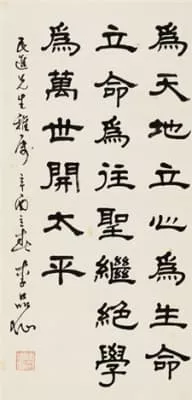 為天地立心為生命
立命為往聖繼絕學
為萬世開太平
民進先生雅屬 辛酉 李品仙